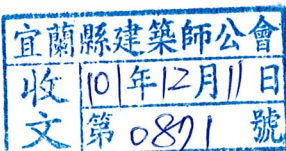 宜蘭縣建築師公會
收文
101年12月11日
第0871號